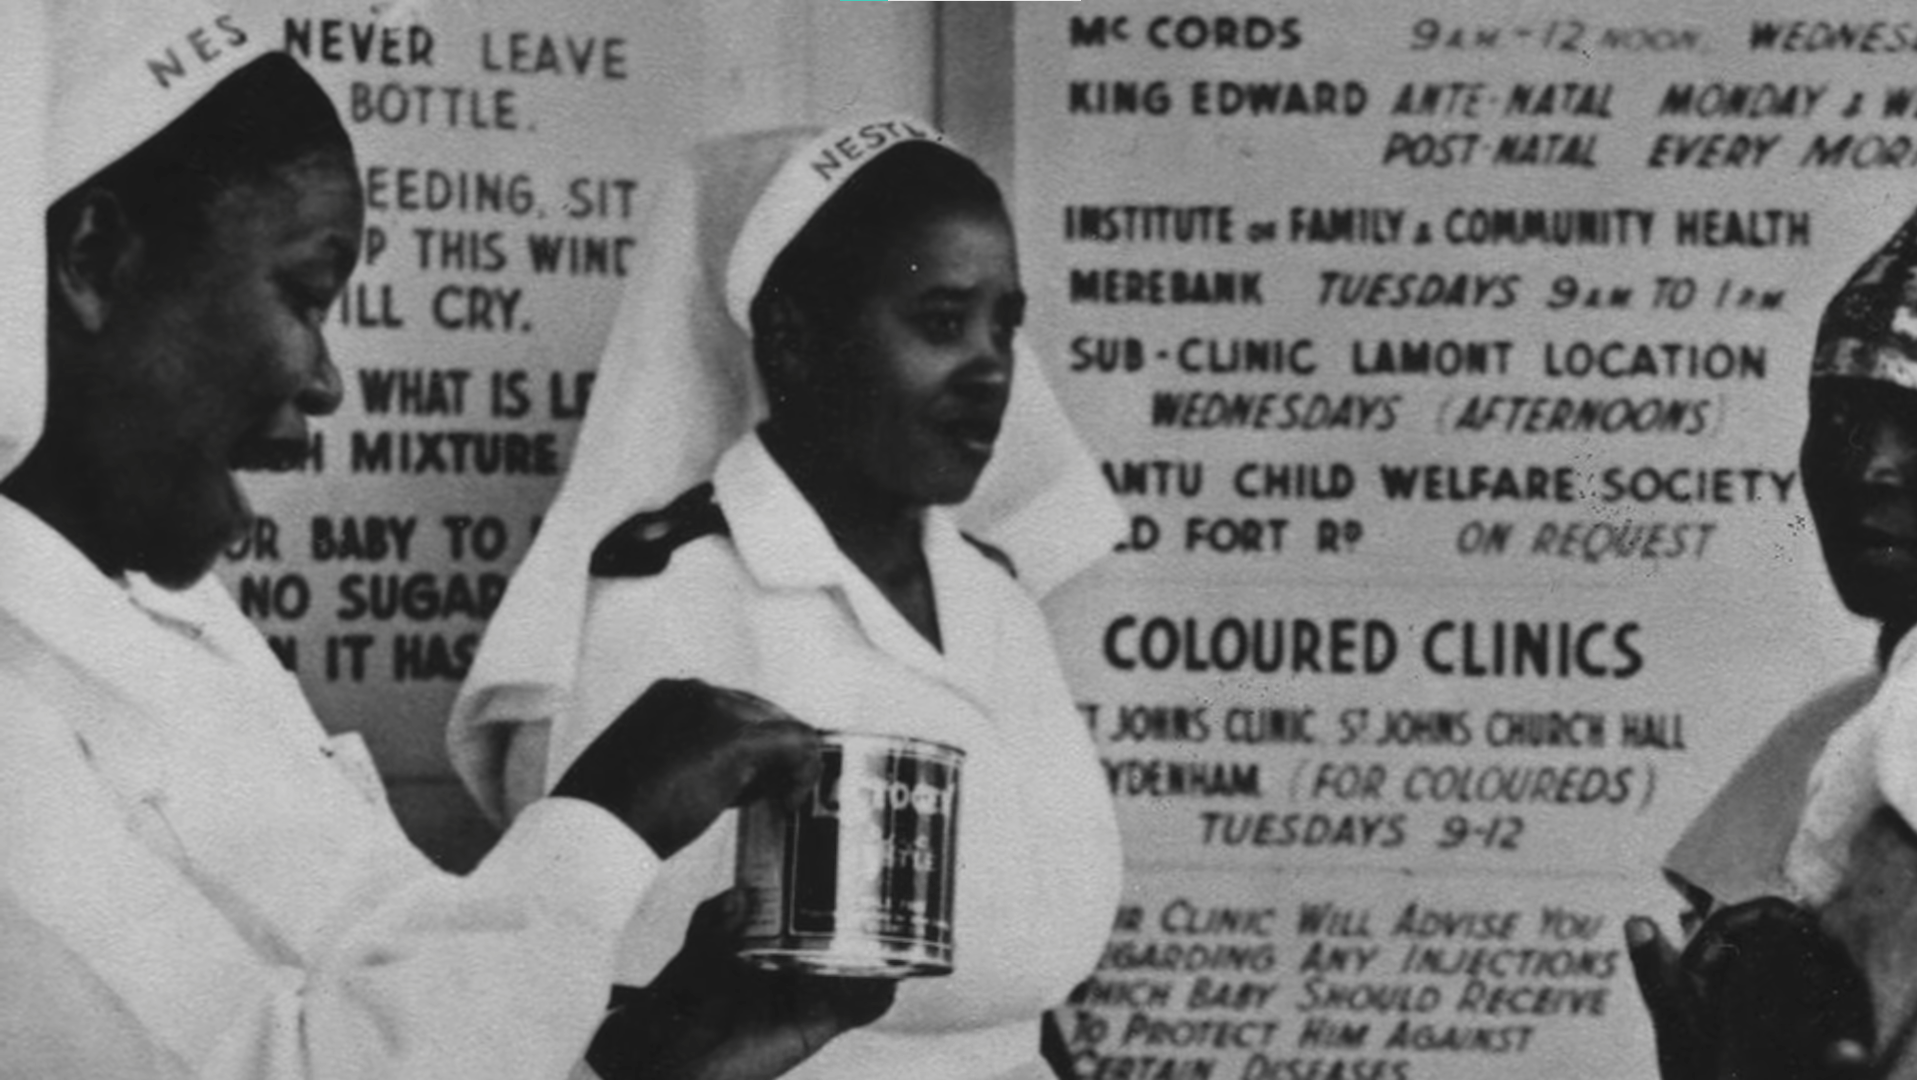 NES
NEVER LEAVE
BOTTLE.
EEDING, SIT
P THIS WIND
ILL CRY.
WHAT IS LE
H MIXTURE
OR BABY TO
NO SUGAR
N IT HAS
NESTL
Mc CORDS 9 AM - 12 NOON, WEDNES
KING EDWARD ANTE-NATAL MONDAY & W
POST-NATAL EVERY MOR
INSTITUTE OF FAMILY & COMMUNITY HEALTH
MEREBANK TUESDAYS 9 AM TO 1 PM
SUB-CLINIC LAMONT LOCATION
WEDNESDAYS (AFTERNOONS)
ANTU CHILD WELFARE SOCIETY
LD FORT RD ON REQUEST
COLOURED CLINICS
T JOHNS CLINIC, ST JOHNS CHURCH HALL
YDENHAM (FOR COLOUREDS)
TUESDAYS 9-12
UR CLINIC WILL ADVISE YOU
EGARDING ANY INJECTIONS
WHICH BABY SHOULD RECEIVE
TO PROTECT HIM AGAINST
CERTAIN DISEASES